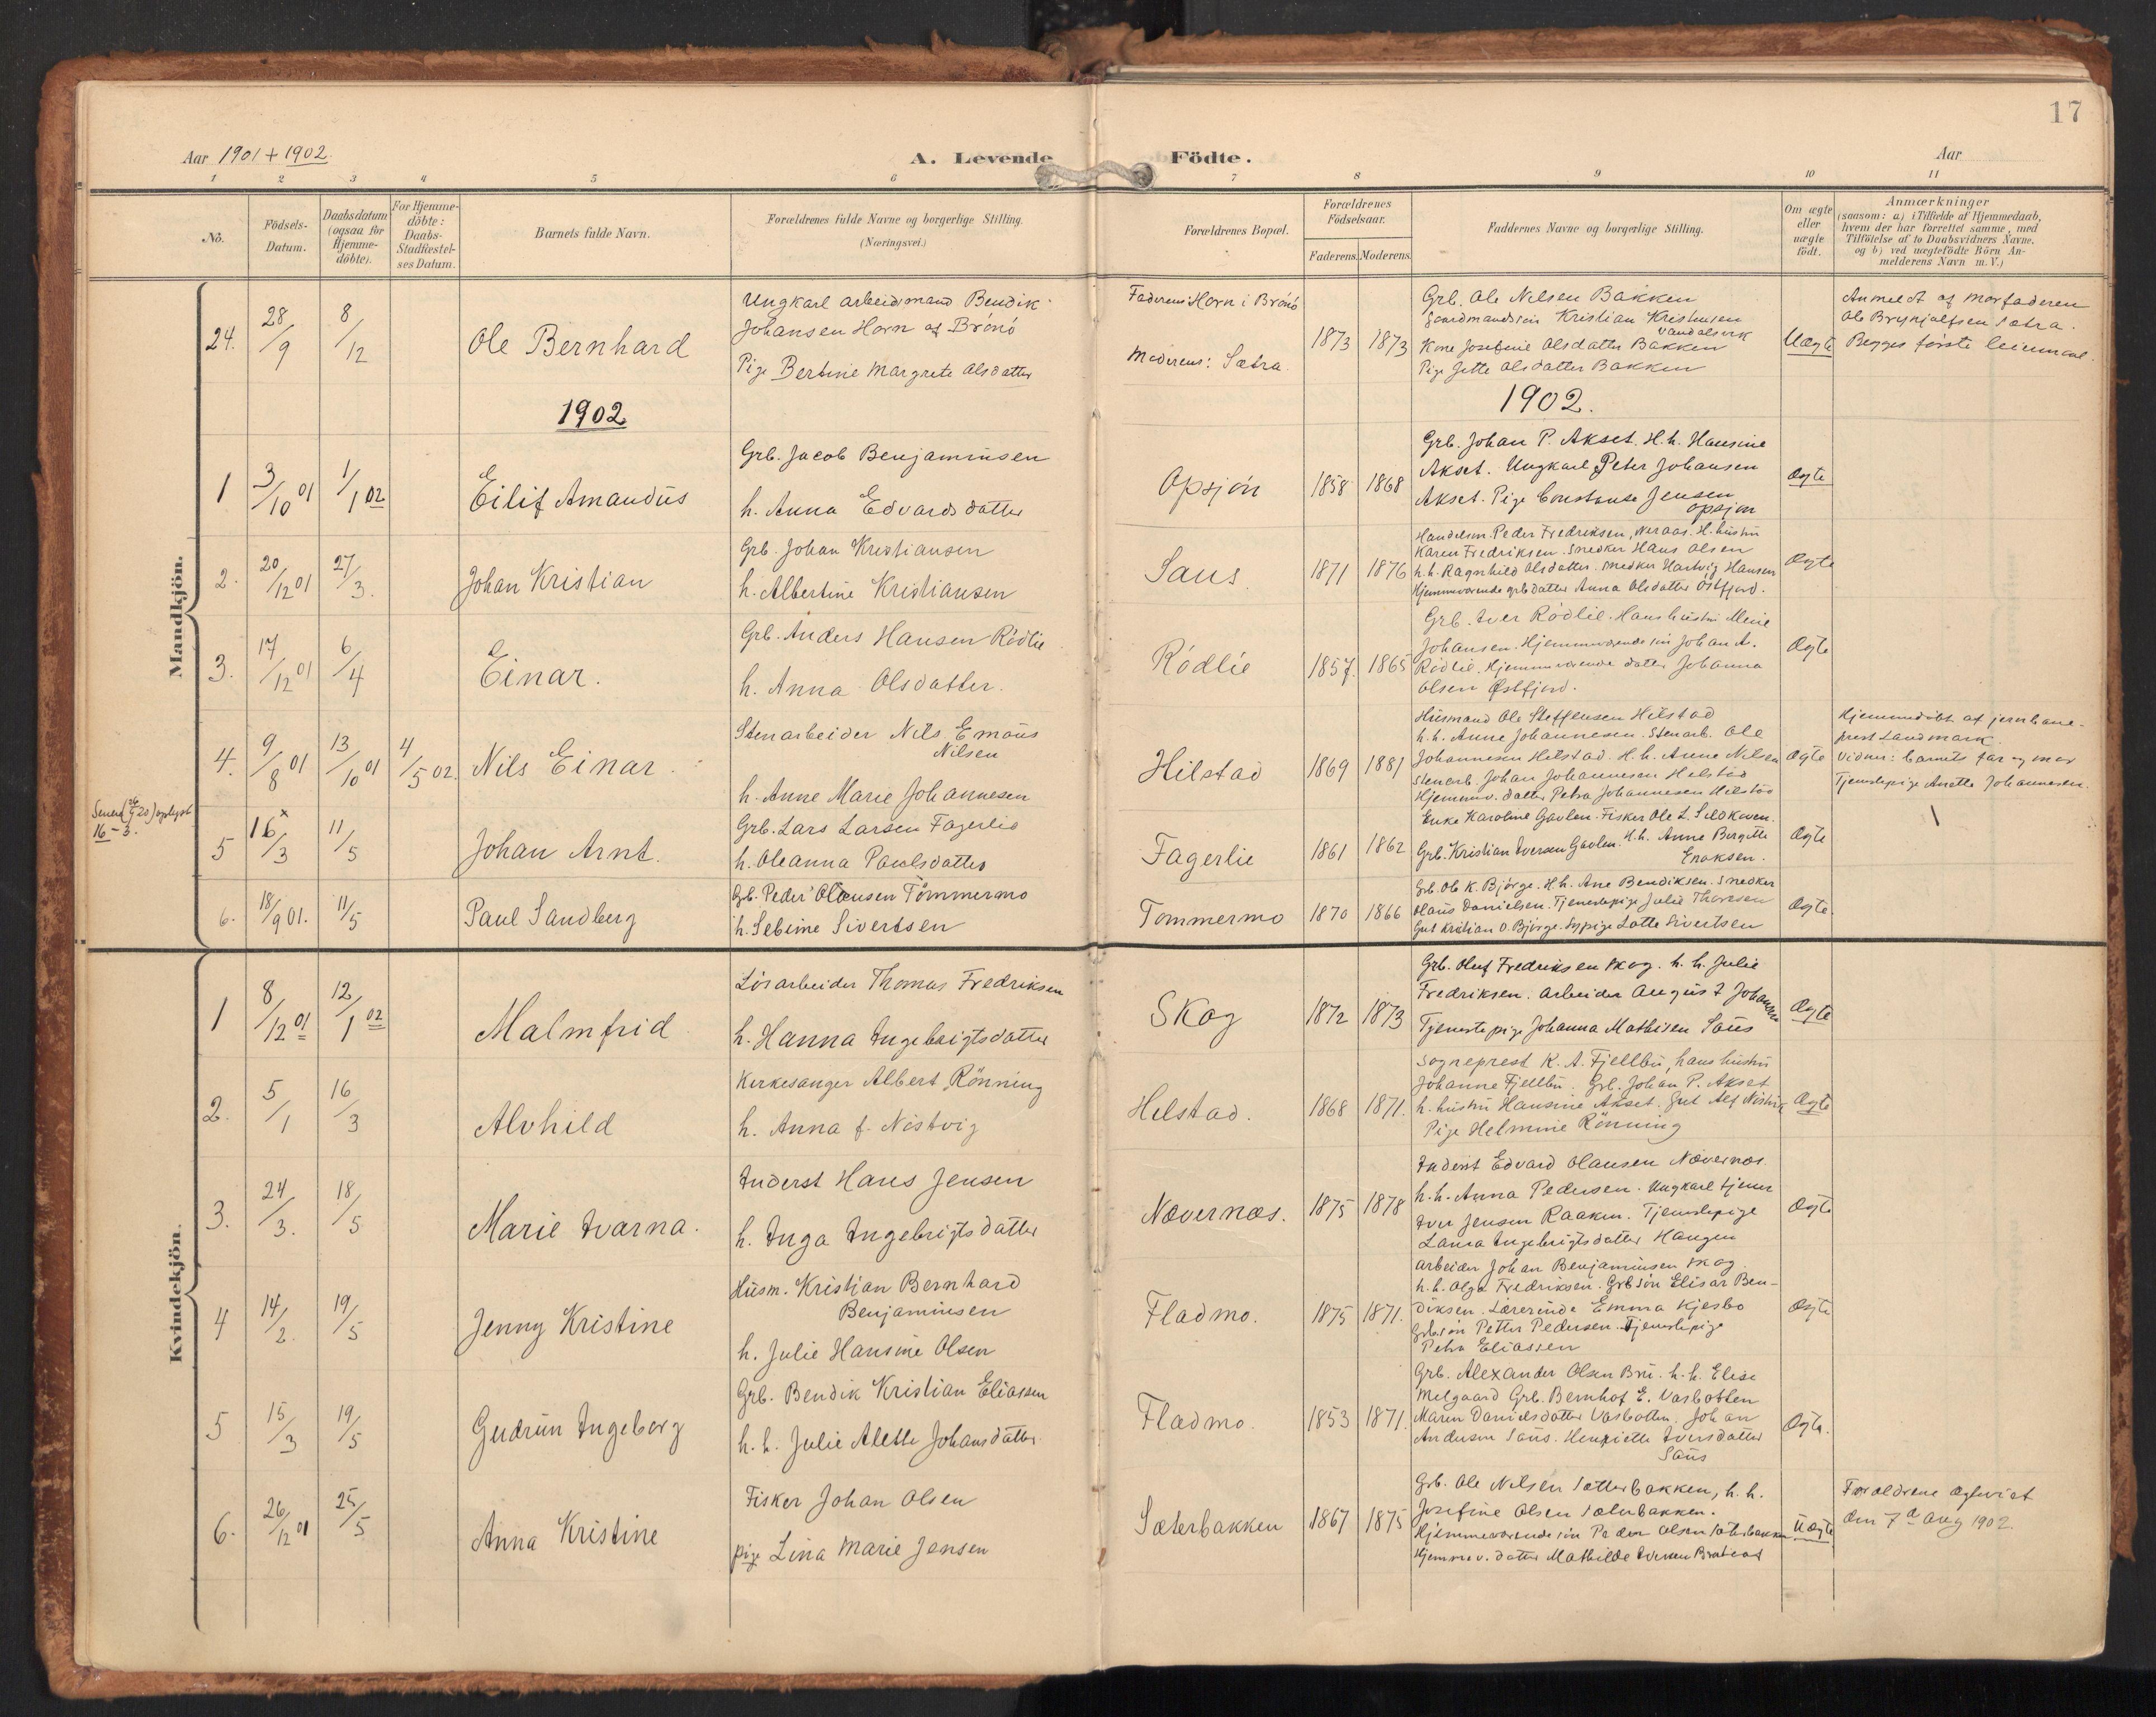 17
Aar 1901 + 1902.
A. Levende Födte.
Aar
1 2 3 4 5 6 7 8 9 10 11
No.
Födsels-Datum.
Daabsdatum (ogsaa for Hjemme-döbte).
For Hjemme-döbte: Daabs-Stadfæstel-ses Datum.
Barnets fulde Navn.
Forældrenes fulde Navne og borgerlige Stilling.
(Næringsvei.)
Forældrenes Bopæl.
Forældrenes Födselsaar.
Faderens. Moderens.
Faddernes Navne og borgerlige Stilling.
Om ægte eller uægte födt.
Anmærkninger
(saasom: a) i Tilfælde af Hjemmedaab,
hvem der har forrettet samme, med
Tilföielse af to Daabsvidners Navne.
og b) ved uægtefödte Börn An-
melderens Navn m.V.)
Mandkjön.
24. 28/9 8/12 Ole Bernhard
Ungkarl arbeidsmand Bendik
Johansen Horn af Brönö
Pige Bertine Margrete Olsdatter
Faderens: Horn i Brönö
Moderens: Sætra.
1873 1873
Grb. Ole Nilsen Bakken
Gaardmandssön Kristian Kristensen
Vandalsvik
Kone Josefine Olsdatter Bakken
Pige Jette Olsdatter Bakken
Uægte
Anmeldt af Morfaderen
Ole Brynjulfsen Sætra.
Begges første leiermaal.
1902
1902.
1 3/10 01 1/1 02 Eilif Amandus
Grb. Jacob Benjaminsen
h. Anna Edvardsdatter
Opsjön
1858 1868
Grb. Johan P. Akset. H.h. Hansine
Akset. Ungkarl Peter Johansen
Akset. Pige Constanse Jensen
Opsjön
Ægte
2. 20/12 01 27/3. Johan Kristian
Grb. Johan Kristiansen
h. Albertine Kristiansen
Saus.
1871 1876
Handelsm. Peder Fredriksen, Neraas. H. hustru
Karen Fredriksen. Snedker Hans Olsen
h.h. Ragnhild Olsdatter. Snedker Hartvig Hansen
Hjemmeværende grb datter Anna Olsdatter Östfjord.
Ægte
3. 17/12 01 6/4 Einar.
Grb. Anders Hansen Rödlie
h. Anna Olsdatter.
Rödlie
1857. 1865
Grb. Iver Rödlie. Hans hustru Mine
Johansen. Hjemmeværende sön Johan A.
Rödlie. Hjemmeværende datter Johanna
Olsen Østfjord.
Ægte
4. 9/8 01 13/10 01 4/5 02. Nils Einar.
Stenarbeider Nils Emaus
Nilsen
h. Anne Marie Johannesen
Hilstad
1869 1881
Husmand Ole Steffensen Hilstad
h.h. Anne Johannesen. Stenarb. Ole
Johannesen Hilstad. H.h. Anne Nilsen
Stenarb. Johan Johannesen Helstad
Hjemmev. datter Petra Johannesen Hilstad
Ægte
Hjemmedöbt af jernbane-
prest Landmark.
Vidner: barnets far og mor
Tjenestepige Anette Johannesen.
16-3.
5 16x/3 11/5 Johan Arnt.
Grb. Lars Larsen Fagerlid
h. Oleanna Paulsdatter
Fagerlie
1861 1862
Enke Karoline Gavlen. Fisker Ole L. Sildkaven.
Grb. Kristian Iversen Gavlen. H.h. Anne Bergitte
Enoksen.
Ægte
6. 18/9 01. 11/5 Paul Sandberg
Grb. Peder Olausen Tömmermo
h. Sebine Sivertsen
Tommermo
1870 1866
Grb. Ole K. Bjørge. H.h. Ane Bendiksen. Snedker
Olaus Danielsen. Tjenestepige Julie Thoresen
Gut Kristian O. Bjørge. Sypige Lotte Sivertsen
Ægte.
Kvindekjön.
1 8/12 01 12/1 02 Malmfrid
Lösarbeider Thomas Fredriksen
h. Hanna Ingebrigtsdatter
Skog
1872 1873
Grb. Oluf Fredriksen Skog. h.h. Julie
Fredriksen. Arbeider August Johansen
Tjenestepige Johanna Mathisen Saus
Ægte
2. 5/1 16/3 Alvhild
Kirkesanger Albert Rönning
h. Anna f. Nistvig
Helstad.
1868 1871.
Sogneprest K. A. Fjellbu, hans hustru
Johanne Fjellbu. Grb. Johan P. Akset
h. hustru Hansine Akset. Gut Alf Nistvik
Pige Helmine Rönning
Ægte
3. 24/3. 18/5 Marie Ivarna.
Inderst Hans Jensen
h. Inga Ingebrigtsdatter
Nævernæs.
1875 1878
Inderst Edvard Olausen Nævernæs.
h.h. Anna Pedersen. Ungkarl tjener
Iver Jensen Raaken. Tjenestepige
Laura Ingebrigtsdatter Haugen
Ægte
4 14/2. 19/5 Jenny Kristine
Husm. Kristian Bernhard
Benjaminsen
h. Julie Hansine Olsen
Fladmo.
1875 1871.
Arbeider Johan Benjaminsen Skog
h.h. Olga Fredriksen. Grb sön Elisar Ben-
diksen. Lærerinde Emma Kjesbo
Grb. sön Petter Pedersen. Tjenestepige
Petra Eliassen
Ægte
5 15/3 19/5 Gudrun Ingeborg
Grb. Bendik Kristian Eliassen
h.h. Julie Alette Johansdatter
Fladmo.
1853 1871.
Grb. Alexander Olsen Bru. h.h. Elise
Melgaard Grb. Bernhof E. Vasbotten
Maren Danielsdatter Vasbotten. Johan
Andersen Saus. Henriette Iversdatter
Saus
Ægte.
6. 26/12 01 25/5 Anna Kristine
Fisker Johan Olsen
pige Lina Marie Jensen
Sæterbakken
1867 1875
Grb. Ole Nilsen Sætterbakken, h.h.
Josefine Olsen Sæterbakken.
Hjemmeværende sön Peder Olsen Sæterbakken
Hjemmev. datter Mathilde Iversen
Uægte
Forældrene ægteviet
den 7d Aug 1902.